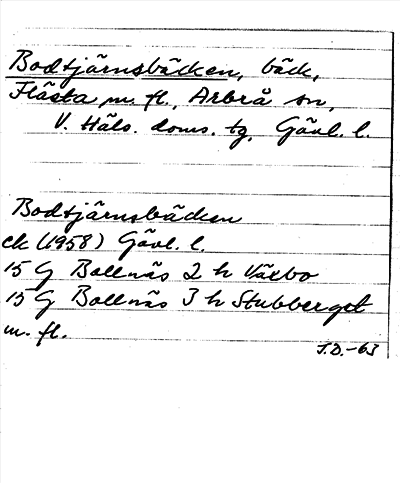 Bodtjärnsbäcken, bäck,
Flästa m. fl., Arbrå sn,
V. Häls. doms. tg, Gävl. l.
Bodtjärnsbäcken
ek (1958) Gävl. l.
15 G Bollnäs 2 h Växbo
15 G Bollnäs 3 h Stubberget
m. fl.
J.D.-63